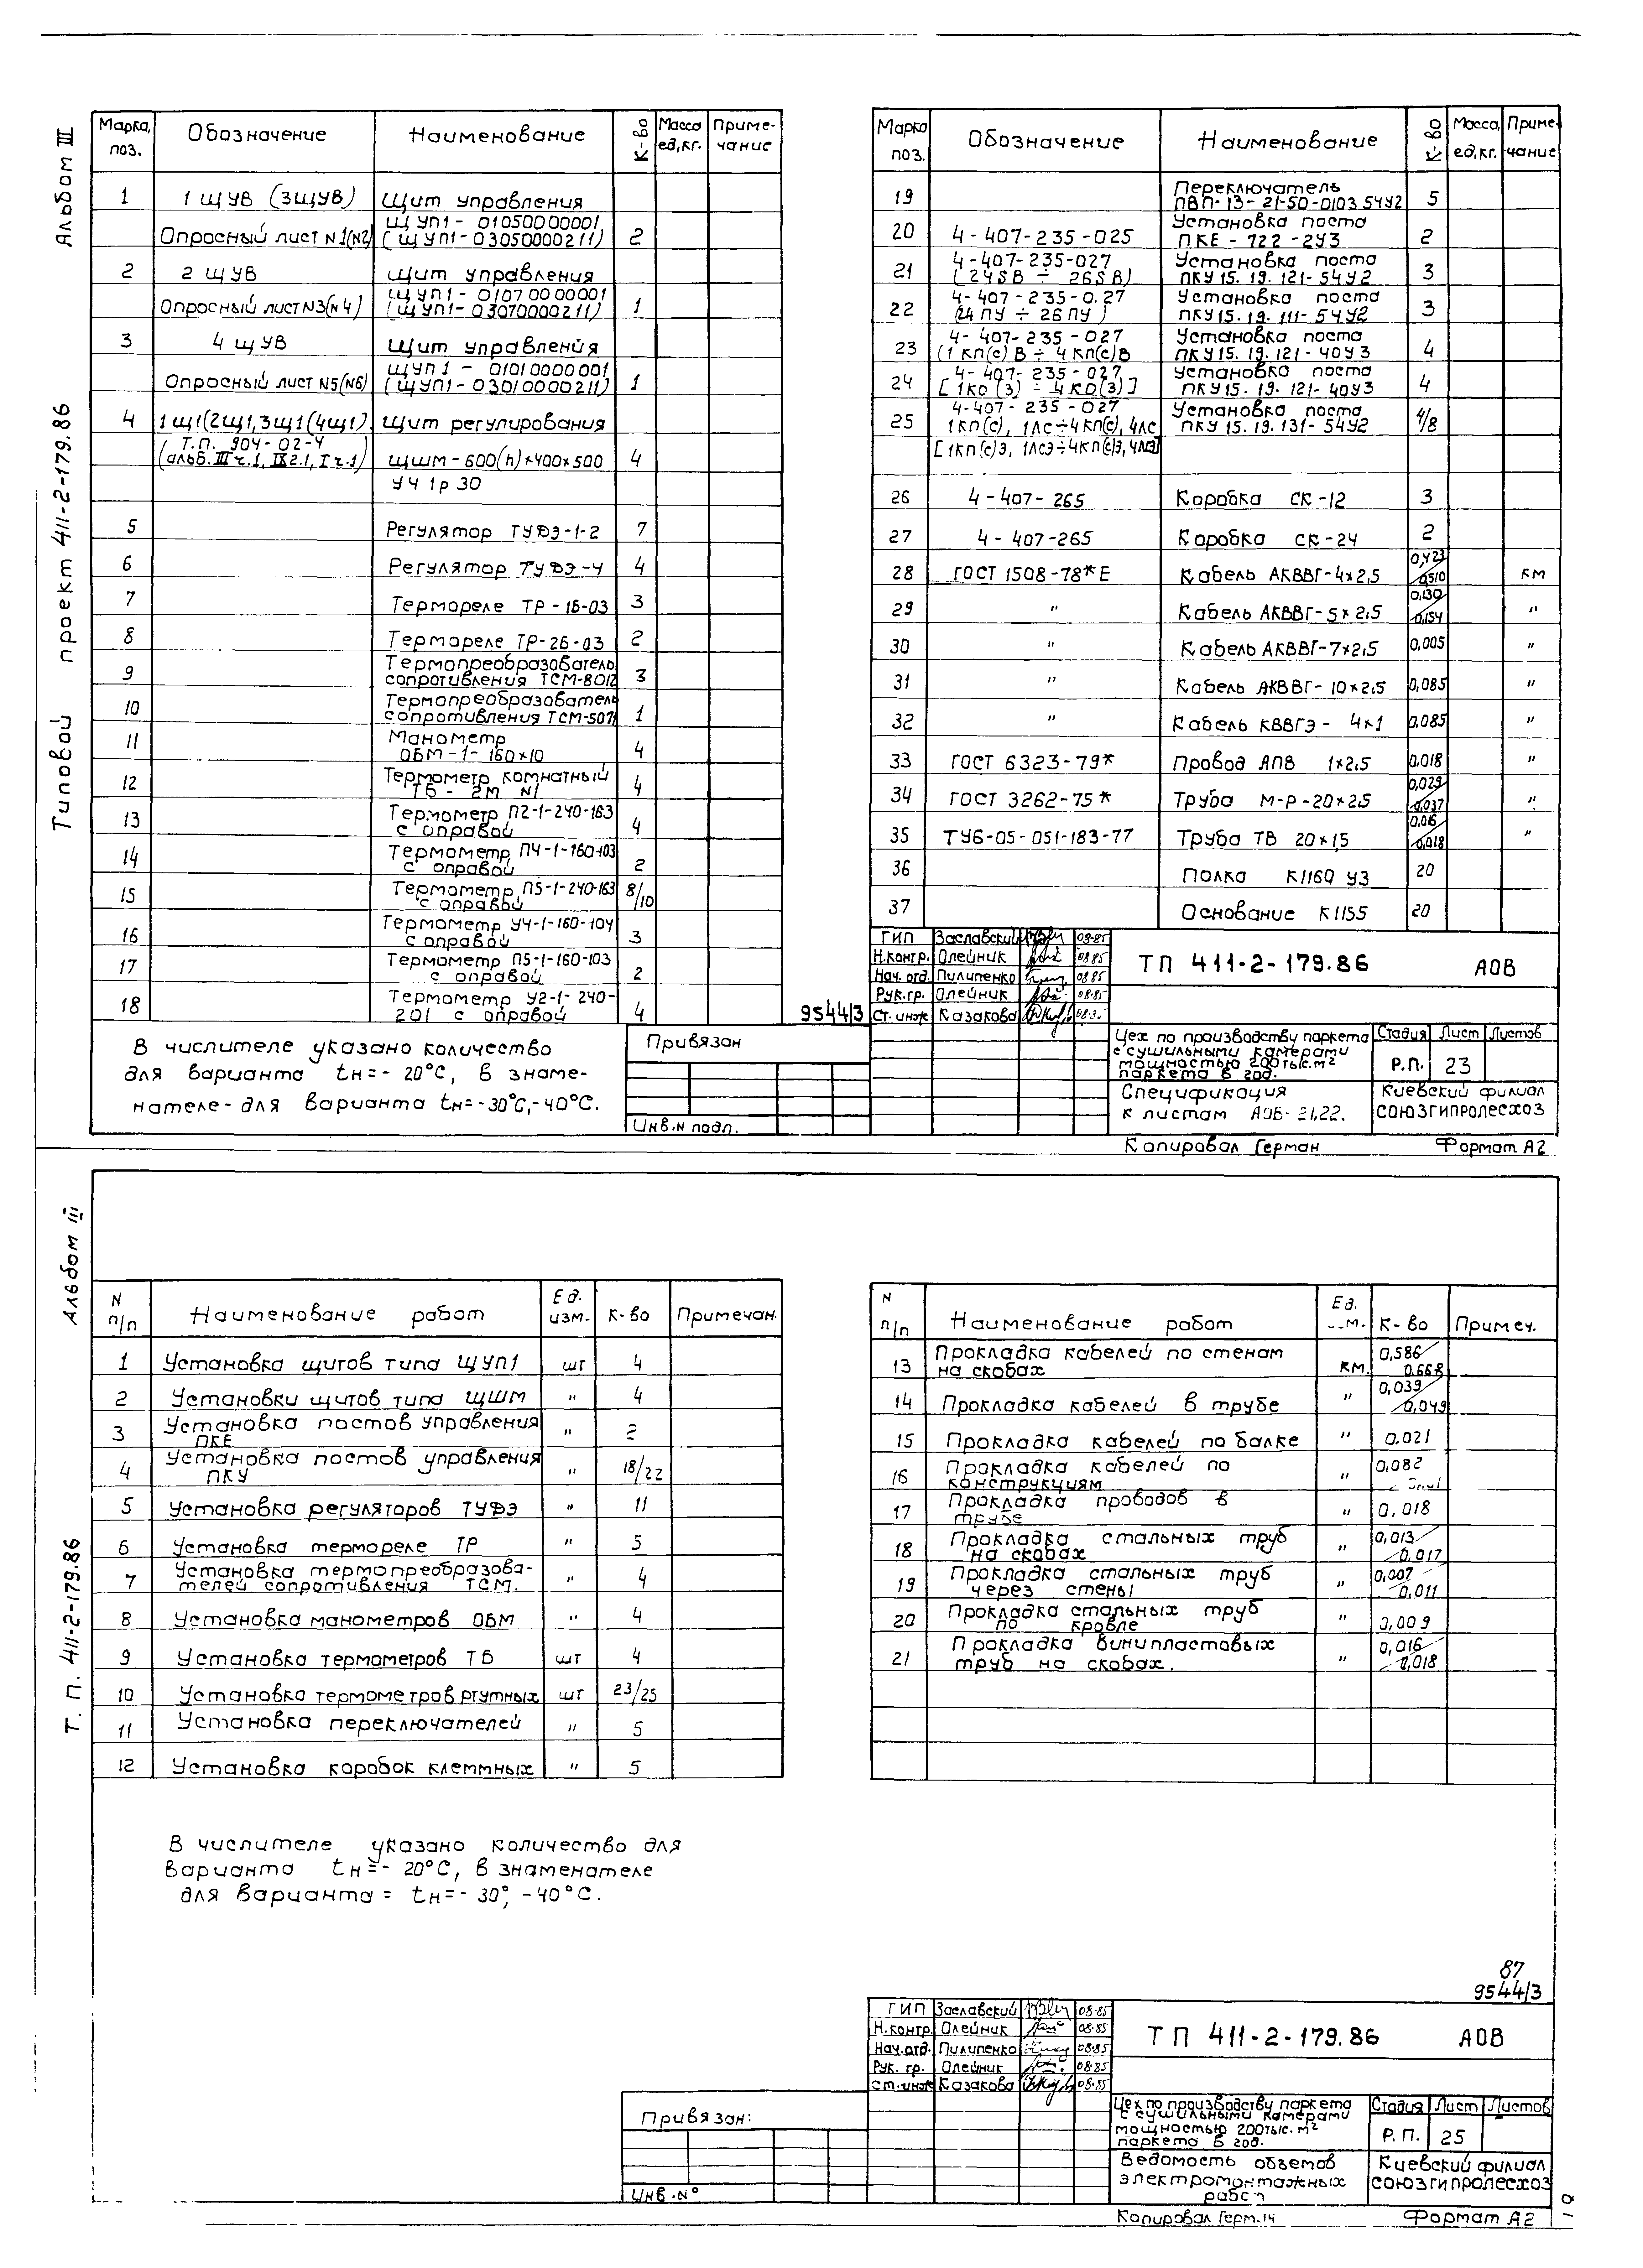 Альбом III
Типовой проект 411-2-179.86
Марка, поз. Обозначение Наименование К-во Масса ед,кг. Приме-чание
1 1 ЩУВ (3ЩУВ) Щит управления
Опросный лист N1(N2) ЩУП1-01050000001 (ЩУП1-03050000211) 2
2 2 ЩУВ Щит управления
Опросный лист N3(N4) ЩУП1-01070000001 (ЩУП1-03070000211) 1
3 4 ЩУВ Щит управления
Опросный лист N5(N6) ЩУП1-01010000001 (ЩУП1-03010000211) 1
4 1Щ1(2Щ1,3Щ1(4Щ1) Щит регулирования
(Т.П. 904-02-4 альб. III ч.1, ч.1) ЩШМ-600(h)×400×500 4
УЧ 1р 30
5 Регулятор ТУДЭ-1-2 7
6 Регулятор ТУДЭ-4 4
7 Термореле ТР-1Б-03 3
8 Термореле ТР-2Б-03 2
9 Термопреобразователь сопротивления ТСМ-8012 3
10 Термопреобразователь сопротивления ТСМ-5071 1
11 Манометр ОБМ-1-160×10 4
12 Термометр комнатный ТБ-2М N1 4
13 Термометр П2-1-240-163 с оправой 4
14 Термометр П4-1-160-103 с оправой 2
15 Термометр П5-1-240-163 с оправой 8/10
16 Термометр У4-1-160-104 с оправой 3
17 Термометр П5-1-160-103 с оправой 2
18 Термометр У2-1-240-201 с оправой 4
В числителе указано количество
для варианта tн=-20°С, в знаме-
нателе-для варианта tн=-30°С,-40°С.
Марка поз. Обозначение Наименование К-во Масса, ед,кг. Приме-чание
19 Переключатель ПВП-13-21-50-0103 54У2 5
20 4-407-235-025 Установка поста ПКЕ-722-2У3 2
21 4-407-235-027 (24SВ ÷ 26SВ) Установка поста ПКУ15.19.121-54У2 3
22 4-407-235-0.27 (24ПУ ÷ 26ПУ) Установка поста ПКУ15.19.111-54У2 3
23 4-407-235-027 (1КП(с)В ÷ 4КП(с)В Установка поста ПКУ15.19.121-40У3 4
24 4-407-235-027 [1КО(З) ÷ 4КО(З)] Установка поста ПКУ15.19.121-40У3 4
25 4-407-235-027 1КП(с), 1ЛС÷4КП(с), 4ЛС Установка поста ПКУ15.19.131-54У2 4/8
[1КП(с)Э, 1ЛСЭ÷4КП(с)Э, 4ЛСЭ]
26 4-407-265 Коробка СК-12 3
27 4-407-265 Коробка СК-24 2
28 ГОСТ 1508-78*Е Кабель АКВВГ-4×2,5 0,423/0,510 км
29 " Кабель АКВВГ-5×2,5 0,130/0,154 "
30 " Кабель АКВВГ-7×2,5 0,005 "
31 " Кабель АКВВГ-10×2,5 0,085 "
32 " Кабель КВВГЭ-4×1 0,085 "
33 ГОСТ 6323-79* Провод АПВ 1×2,5 0,018 "
34 ГОСТ 3262-75* Труба М-Р-20×2,5 0,029/0,037 "
35 ТУ6-05-051-183-77 Труба ТВ 20×1,5 0,016/0,018 "
36 Полка К1160 У3 20
37 Основание К1155 20
9544/3
ГИП Заславский 08.85
Н.контр. Олейник 08.85
Нач.отд. Пилипенко 08.85
Рук.гр. Олейник 08.85
Ст. инж Казакова
ТП 411-2-179.86 АОВ
Привязан
Инв.N подл.
Цех по производству паркета с сушильными камерами мощностью 200тыс.м² паркета в год.
Стадия Лист Листов
Р.П. 23
Спецификация к листам АОВ-21,22.
Киевский филиал СОЮЗГИПРОЛЕСХОЗ
Копировал Герман Формат А2
Альбом III
Т. П. 411-2-179.86
N п/п Наименование работ Ед. изм. К-во Примечан.
1 Установка щитов типа ЩУП1 шт 4
2 Установки щитов типа ЩШМ " 4
3 Установка постов управления ПКЕ " 2
4 Установка постов управления ПКУ " 18/22
5 Установка регуляторов ТУДЭ " 11
6 Установка термореле ТР " 5
7 Установка термопреобразова-телей сопротивления ТСМ. " 4
8 Установка манометров ОБМ " 4
9 Установка термометров ТБ шт 4
10 Установка термометров ртутных шт 23/25
11 Установка переключателей " 5
12 Установка коробок клеммных " 5
N п/п Наименование работ Ед. К-во Примеч.
13 Прокладка кабелей по стенам на скобах км. 0,586/0.668
14 Прокладка кабелей в трубе " 0,039/0,049
15 Прокладка кабелей по балке " 0,021
16 Прокладка кабелей по конструкциям " 0,082
17 Прокладка проводов в трубе " 0,018
18 Прокладка стальных труб на скобах " 0,013/0,017
19 Прокладка стальных труб через стены " 0,007/0,011
20 Прокладка стальных труб по кровле " 0,009
21 Прокладка винипластовых труб на скобах. " 0,016/0,018
В числителе указано количество для
варианта tн=-20°С, в знаменателе
для варианта = tн=-30°, -40°С.
87
9544/3
ГИП Заславский 08.85
Н.контр. Олейник 08.85
Нач.отд. Пилипенко 08.85
Рук. гр. Олейник 08.85
ст.инж Казакова 08.85
ТП 411-2-179.86 АОВ
Привязан:
Инв.N°
Цех по производству паркета с сушильными камерами мощностью 200тыс.м² паркета в год.
Стадия Лист Листов
Р.П. 25
Ведомость объемов электромонтажных работ
Киевский филиал СОЮЗГИПРОЛЕСХОЗ
Копировал Формат А2